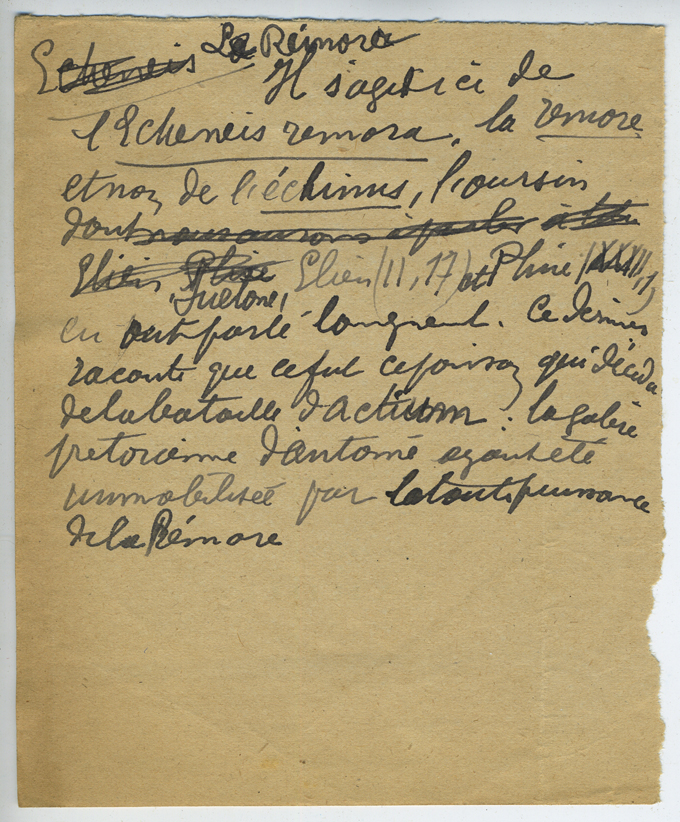 Echeneis La Rémora
Il s'agit ici de
l'Echeneis remora, la remore
et non de l'échinus, l'oursin
dont nous aurons à parler
Elien Pline Elien (II, 17) et Pline (XXXII, 1)
Suetone,
en ont parlé longuement. Ce dernier
raconte que ce fut ce poisson qui décida
de la bataille d'Actium : la galère
pretorienne d'Antoine ayant été
immobilisée par la toute puissance
de la Rémore